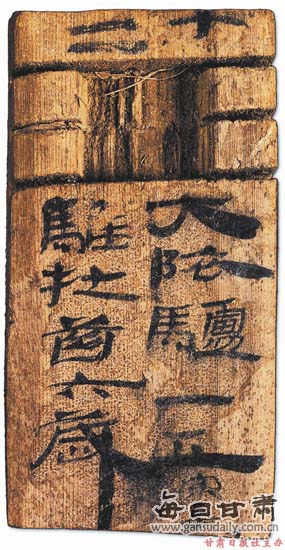 十二
大 一匹
牡齒六歲
每日甘肃
www.gansudaily.com.cn
甘肃日报社主办